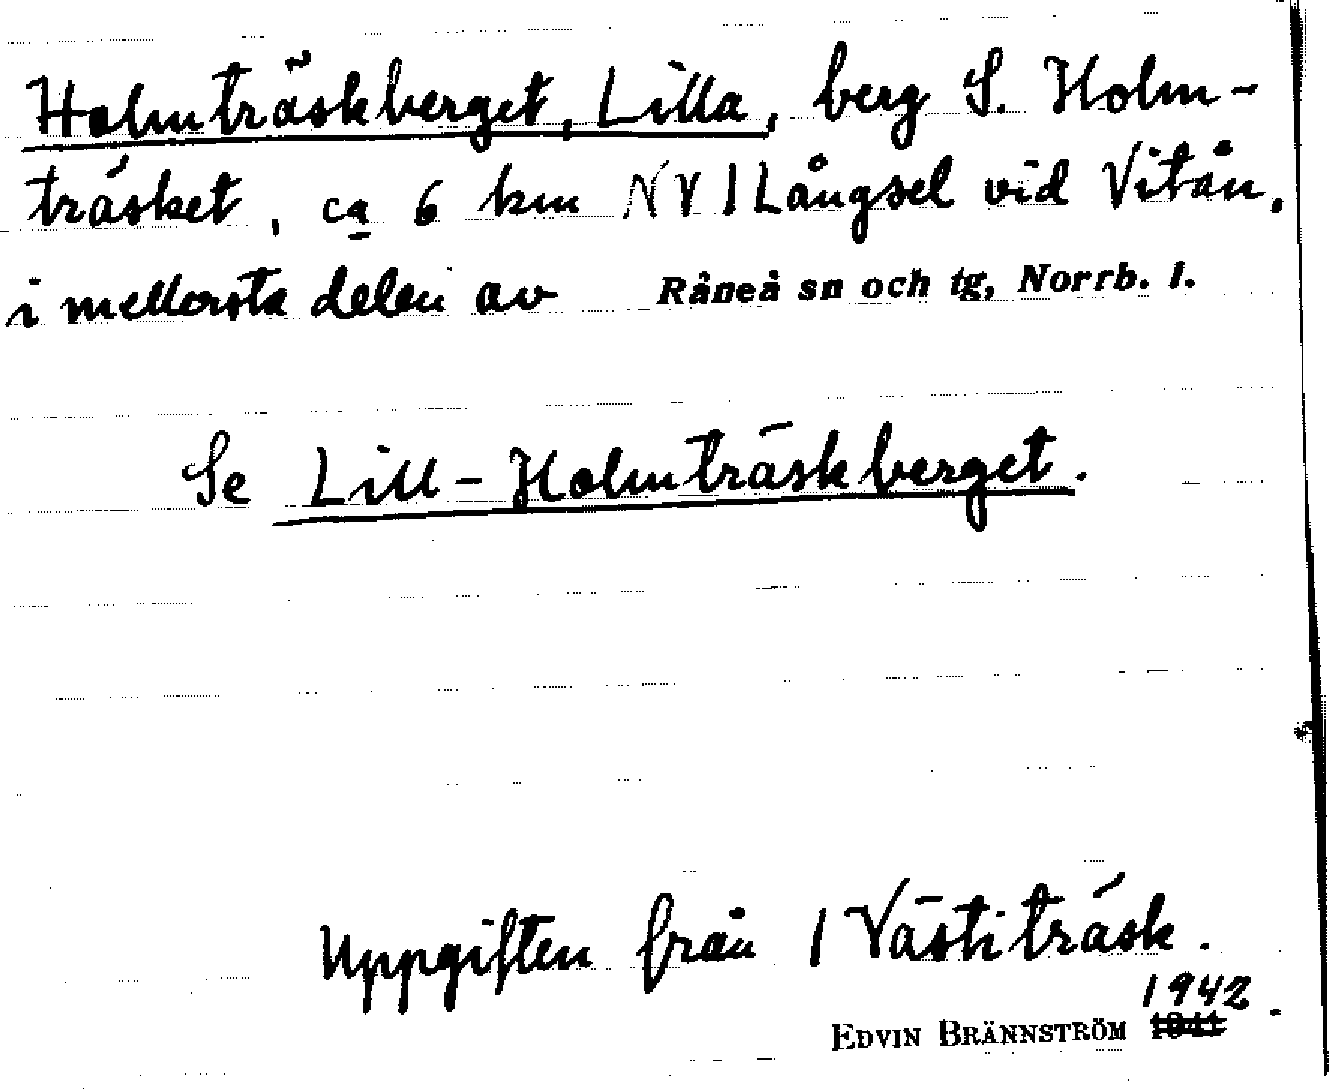 Holmträskberget, Lilla, berg S. Holm-
träsket, ca 6 km NV 1 Långsel vid Vitån,
i mellersta delen av Råneå sn och tg, Norrb. l.
Se Lill-Holmträskberget.
Uppgiften från 1 Västiträsk.
1942
EDVIN BRÄNNSTRÖM 1941.